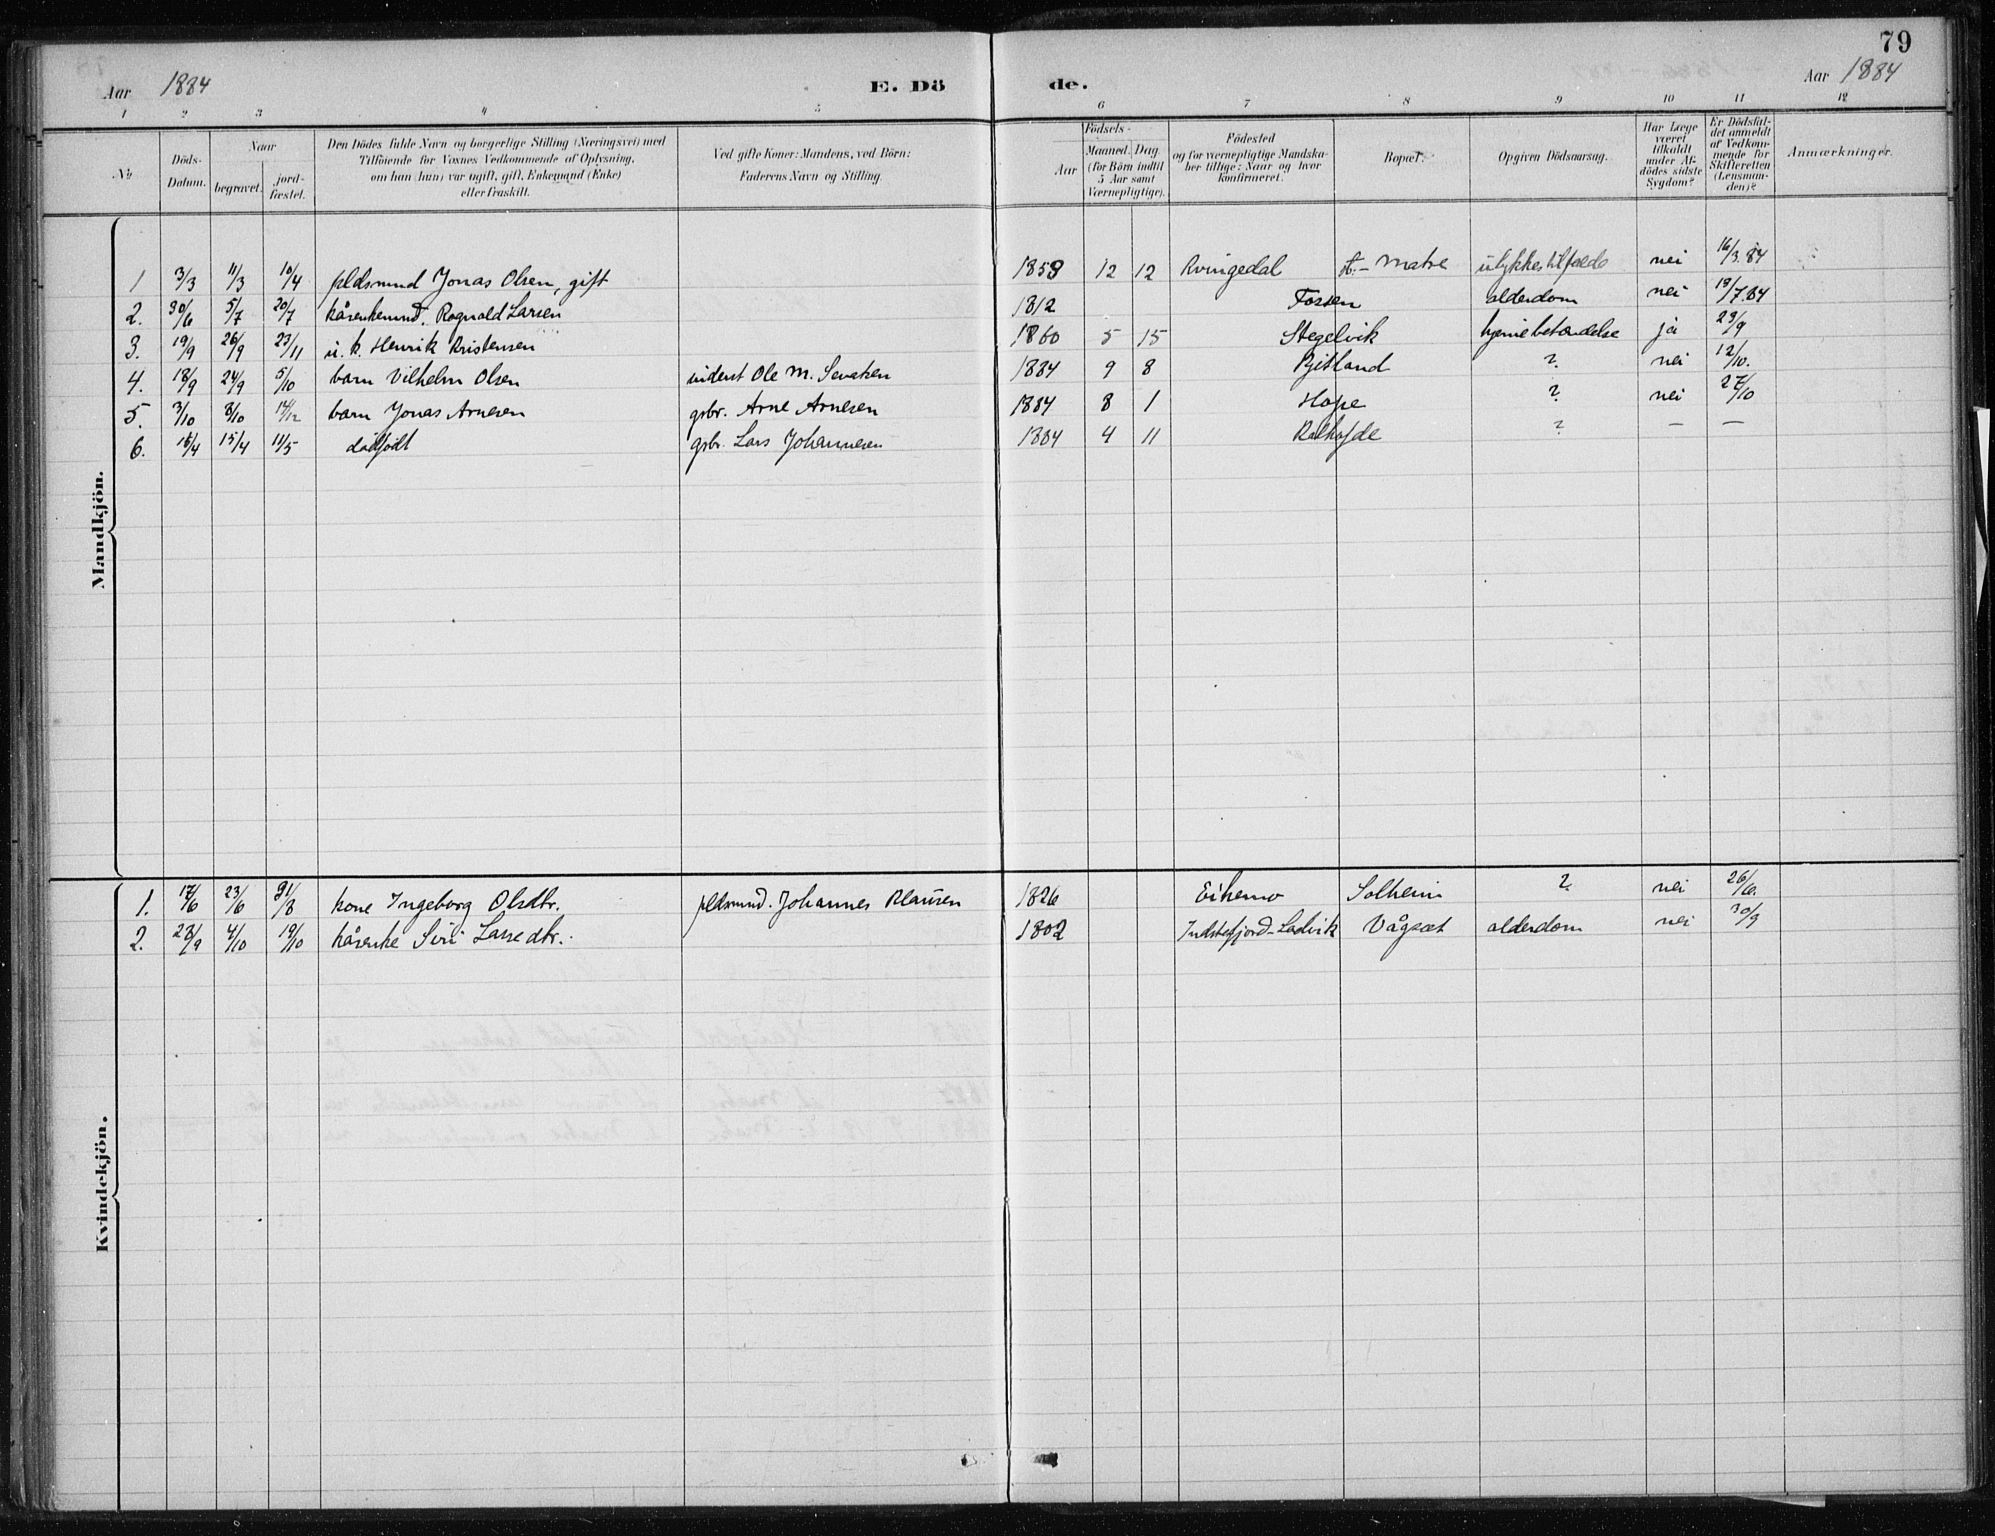 79
Aar 1884 E. Dö de. Aar 1884
1 2 3 4 5 6 7 8 9 10 11 12
No
Döds-Datum.
Naar
begravet.
jord-fæstet.
Den Dödes fulde Navn og borgerlige Stilling (Næringsvei) med
Tilföiende for Voxnes Vedkommende af Oplysning,
om han (hun) var ugift, gift, Enkemand (Enke)
eller fraskilt.
Ved gifte Koner: Mandens, ved Börn:
Faderens Navn og Stilling.
Födsels-
Aar
Maaned. Dag
(for Börn indtil
5 Aar samt
Værnepligtige).
Födested
og for værnepligtige Mandska-
ber tillige: Naar og hvor
konfirmeret.
Bopæl.
Opgiven Dödsaarsag.
Har Læge
været
tilkaldt
under Af-
dödes sidste
Sygdom?
Er Dödsfal-
det anmeldt
af Vedkom-
mende for
Skifteretten
(Lensman-
den)?
Anmærkninger.
Mandkjön.
1 3/3 11/3 10/4 pldsmnd Jonas Olsen, gift 1858 12 12 Kvingedal Matre ulykkestilfælde nei 16/3.84
2. 30/6 5/7 20/7 kårenkemnd. Rognald Larsen 1812 Fossen alderdom nei 13/7.84
3. 19/9 26/9 23/11 u. k. Henrik Kristensen 1860 5 15 Stegelvik hjernebetændelse ja 23/9
4. 18/9 24/9 5/10 barn Vilhelm Olsen inderst Ole M. 1884 9 8 ? nei 12/10.
5. 3/10 8/10 14/12 barn Jonas Arnesen gsbr. Arne Arnesen 1884 8 1 Hope ? nei 27/10
6. 15/4 11/5 dødfødt gsbr. Lars Johannesen 1884 4 11 ? — —
Kvindekjön.
1. 17/6 23/6 31/8 kone Ingeborg Olsdtr. pldsmnd. Johannes Klausen 1826 Eikemo Solheim ? nei 26/6.
2. 28/9 4/10 19/10 kårenke Siri Larsedtr. 1802 Indstefjord-Ladvik Vågsæt alderdom nei 30/9